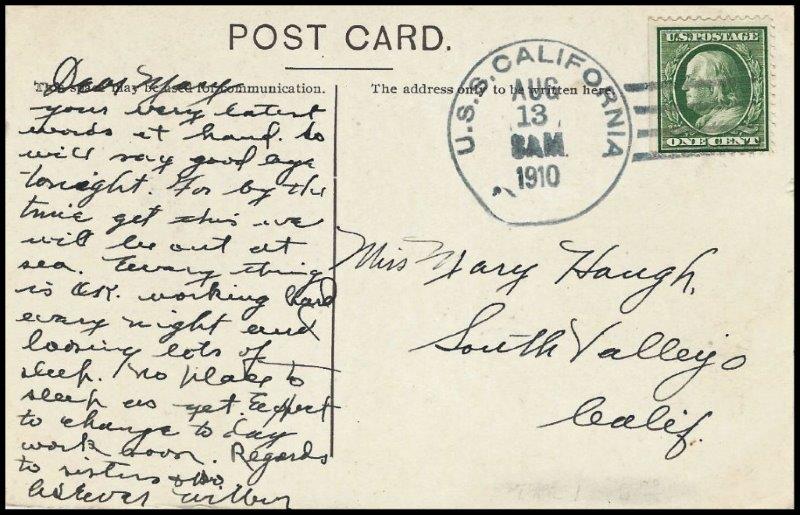 POST CARD.
This space may be used for communication.
The address only to be written here.
U.S.S. CALIFORNIA
AUG
13
8AM
1910
U.S. POSTAGE
ONE CENT
Dear Mary
your very latest
words at hand. so
will say good eye
tonight. For by the
time get this we
will be out at
sea. Every thing
is OK. working hard
every night and
loosing lots of
sleep. No place to
sleep as yet. Expect
to change to day
work soon. Regards
to sisters
as Ever Wilbur
Miss Mary Haugh,
South Vallejo
Calif.